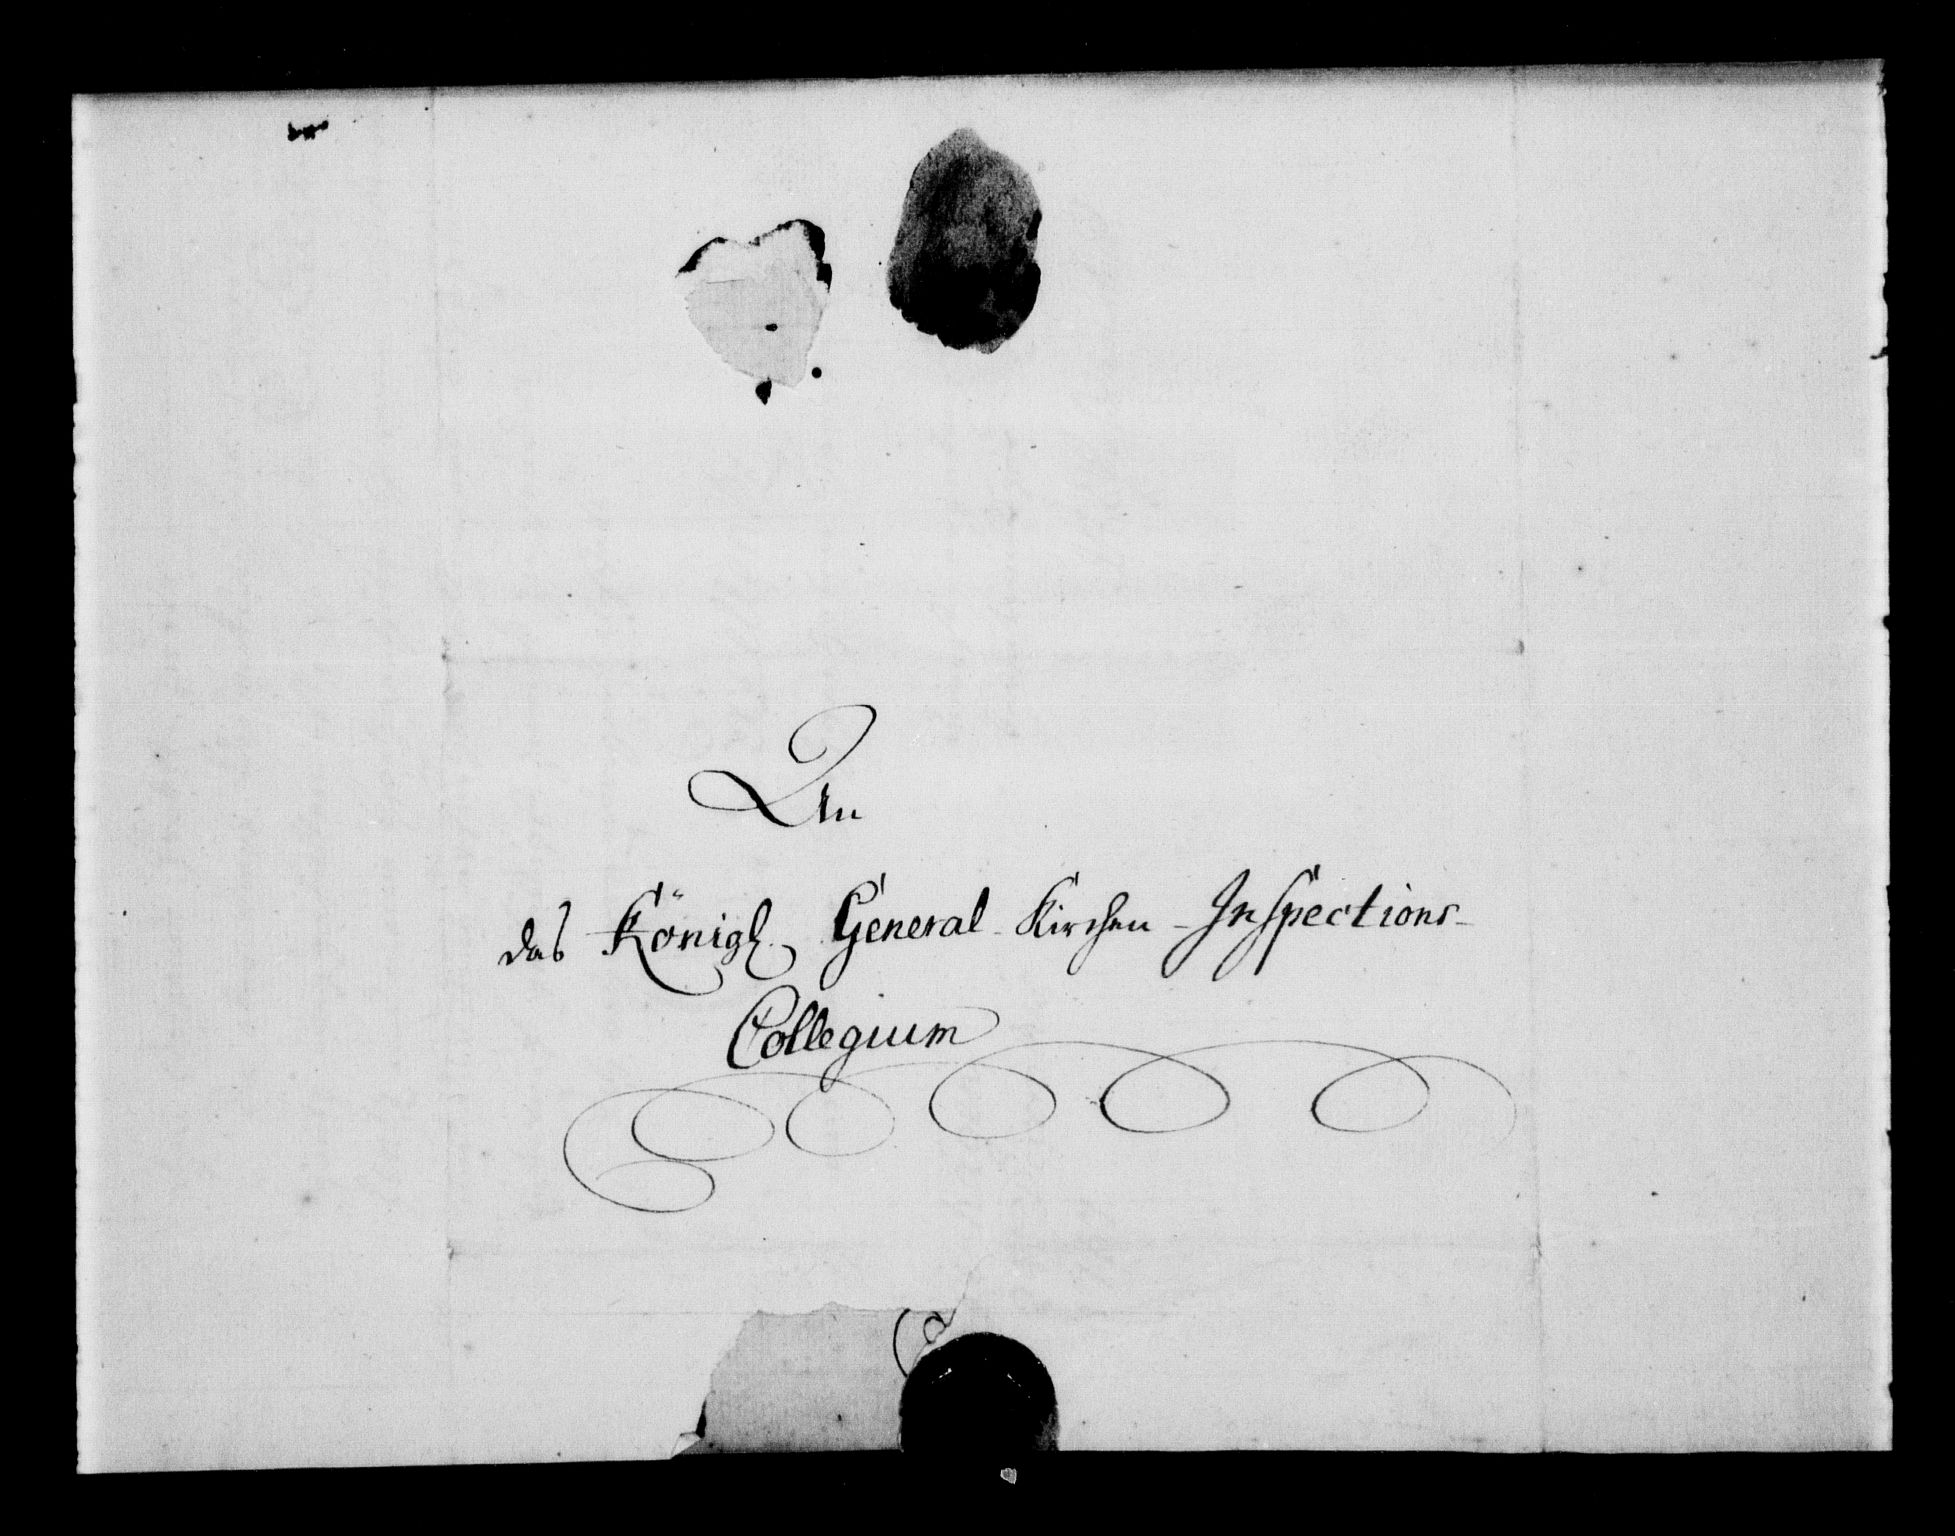 An
das Königl. General-Kirchen-Inspections-
Collegium